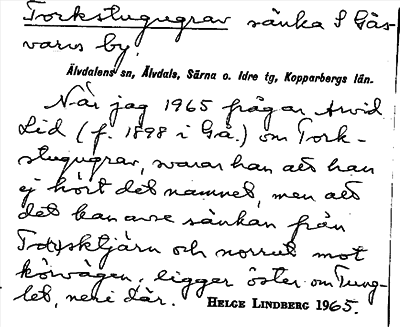 Torkstugugrav sänka S Gås-
varvs by.
Älvdalens sn, Älvdals, Särna o. Idre tg, Kopparbergs län.
När jag 1965 frågar Arvid
Lid (f. 1898 i Gå.) om Tork-
stugugrav, svarar han att han
ej hört det namnet, men att
det kan avse sänkan från
To(r)sktjärn och norrut mot
körvägen, ligger öster om Tung-
let, neri där. HELGE LINDBERG 1965.